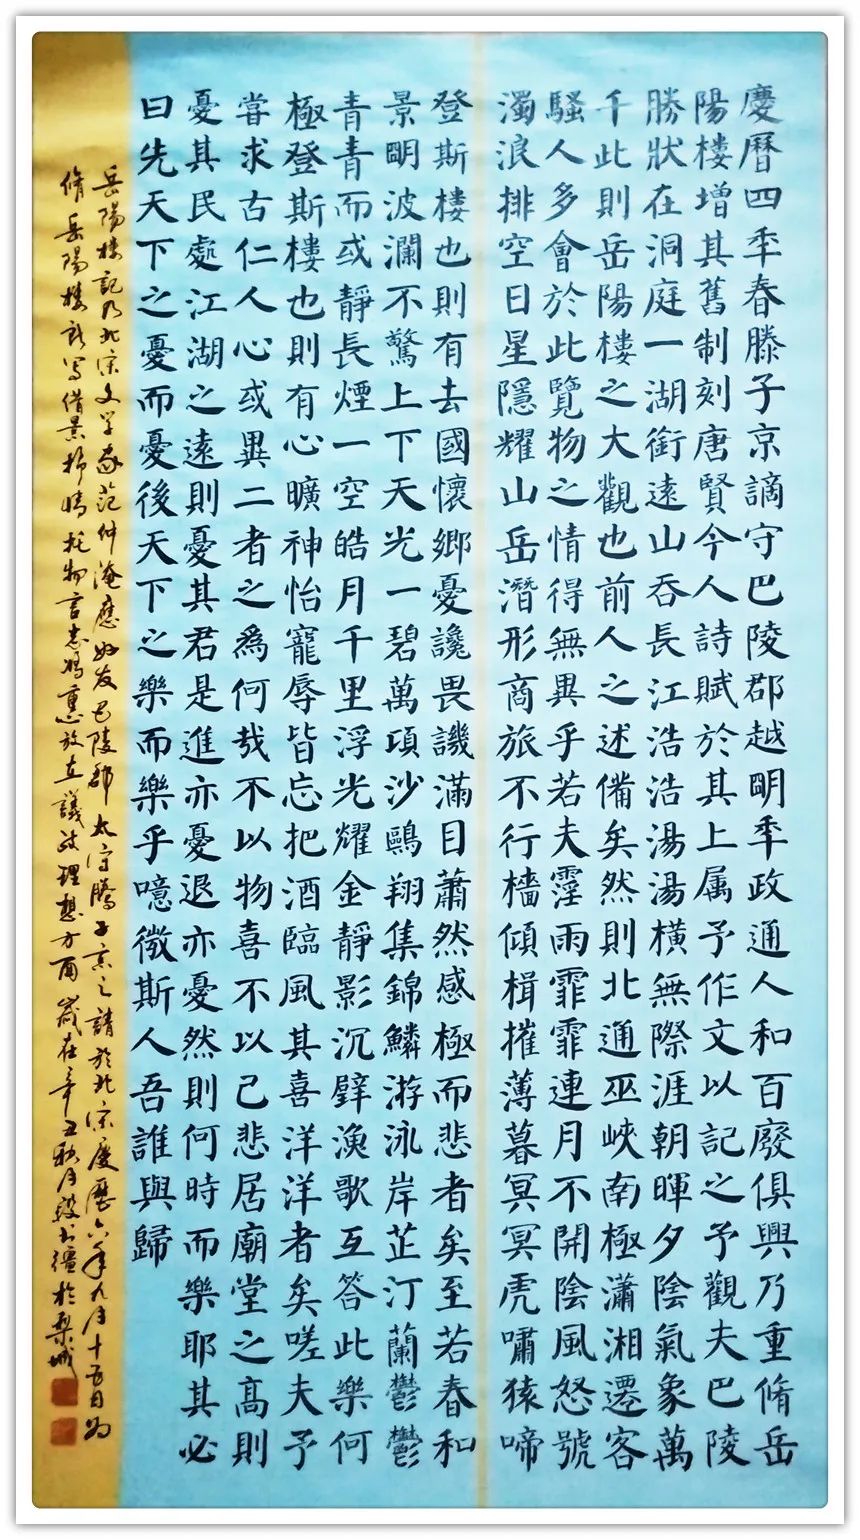 慶曆四秊春滕子京謫守巴陵郡越明秊政通人和百廢俱興乃重脩岳
陽樓增其舊制刻唐賢今人詩賦於其上属予作文以記之予觀夫巴陵
勝狀在洞庭一湖銜遠山吞長江浩浩湯湯橫無際涯朝暉夕陰氣象萬
千此則岳陽樓之大觀也前人之述備矣然則北通巫峽南極瀟湘遷客
騷人多會於此覽物之情得無異乎若夫霪雨霏霏連月不開陰風怒號
濁浪排空日星隱耀山岳潛形商旅不行檣傾楫摧薄暮冥冥虎嘯猿啼
登斯樓也則有去國懷鄉憂讒畏譏滿目蕭然感極而悲者矣至若春和
景明波瀾不驚上下天光一碧萬頃沙鷗翔集錦鱗游泳岸芷汀蘭鬱鬱
青青而或靜長煙一空皓月千里浮光耀金靜影沉璧漁歌互答此樂何
極登斯樓也則有心曠神怡寵辱皆忘把酒臨風其喜洋洋者矣嗟夫予
嘗求古仁人心或異二者之為何哉不以物喜不以己悲居廟堂之高則
憂其民處江湖之遠則憂其君是進亦憂退亦憂然則何時而樂耶其必
曰先天下之憂而憂後天下之樂而樂乎噫微斯人吾誰與歸
岳陽樓記乃北宋文学家范仲淹應好友巴陵郡太守騰子京之請於北宋慶曆六年九月十五日為
脩岳陽樓所写借景抒情托物言志將重點放在議政理想方面歲在辛丑秋月段書於梨城